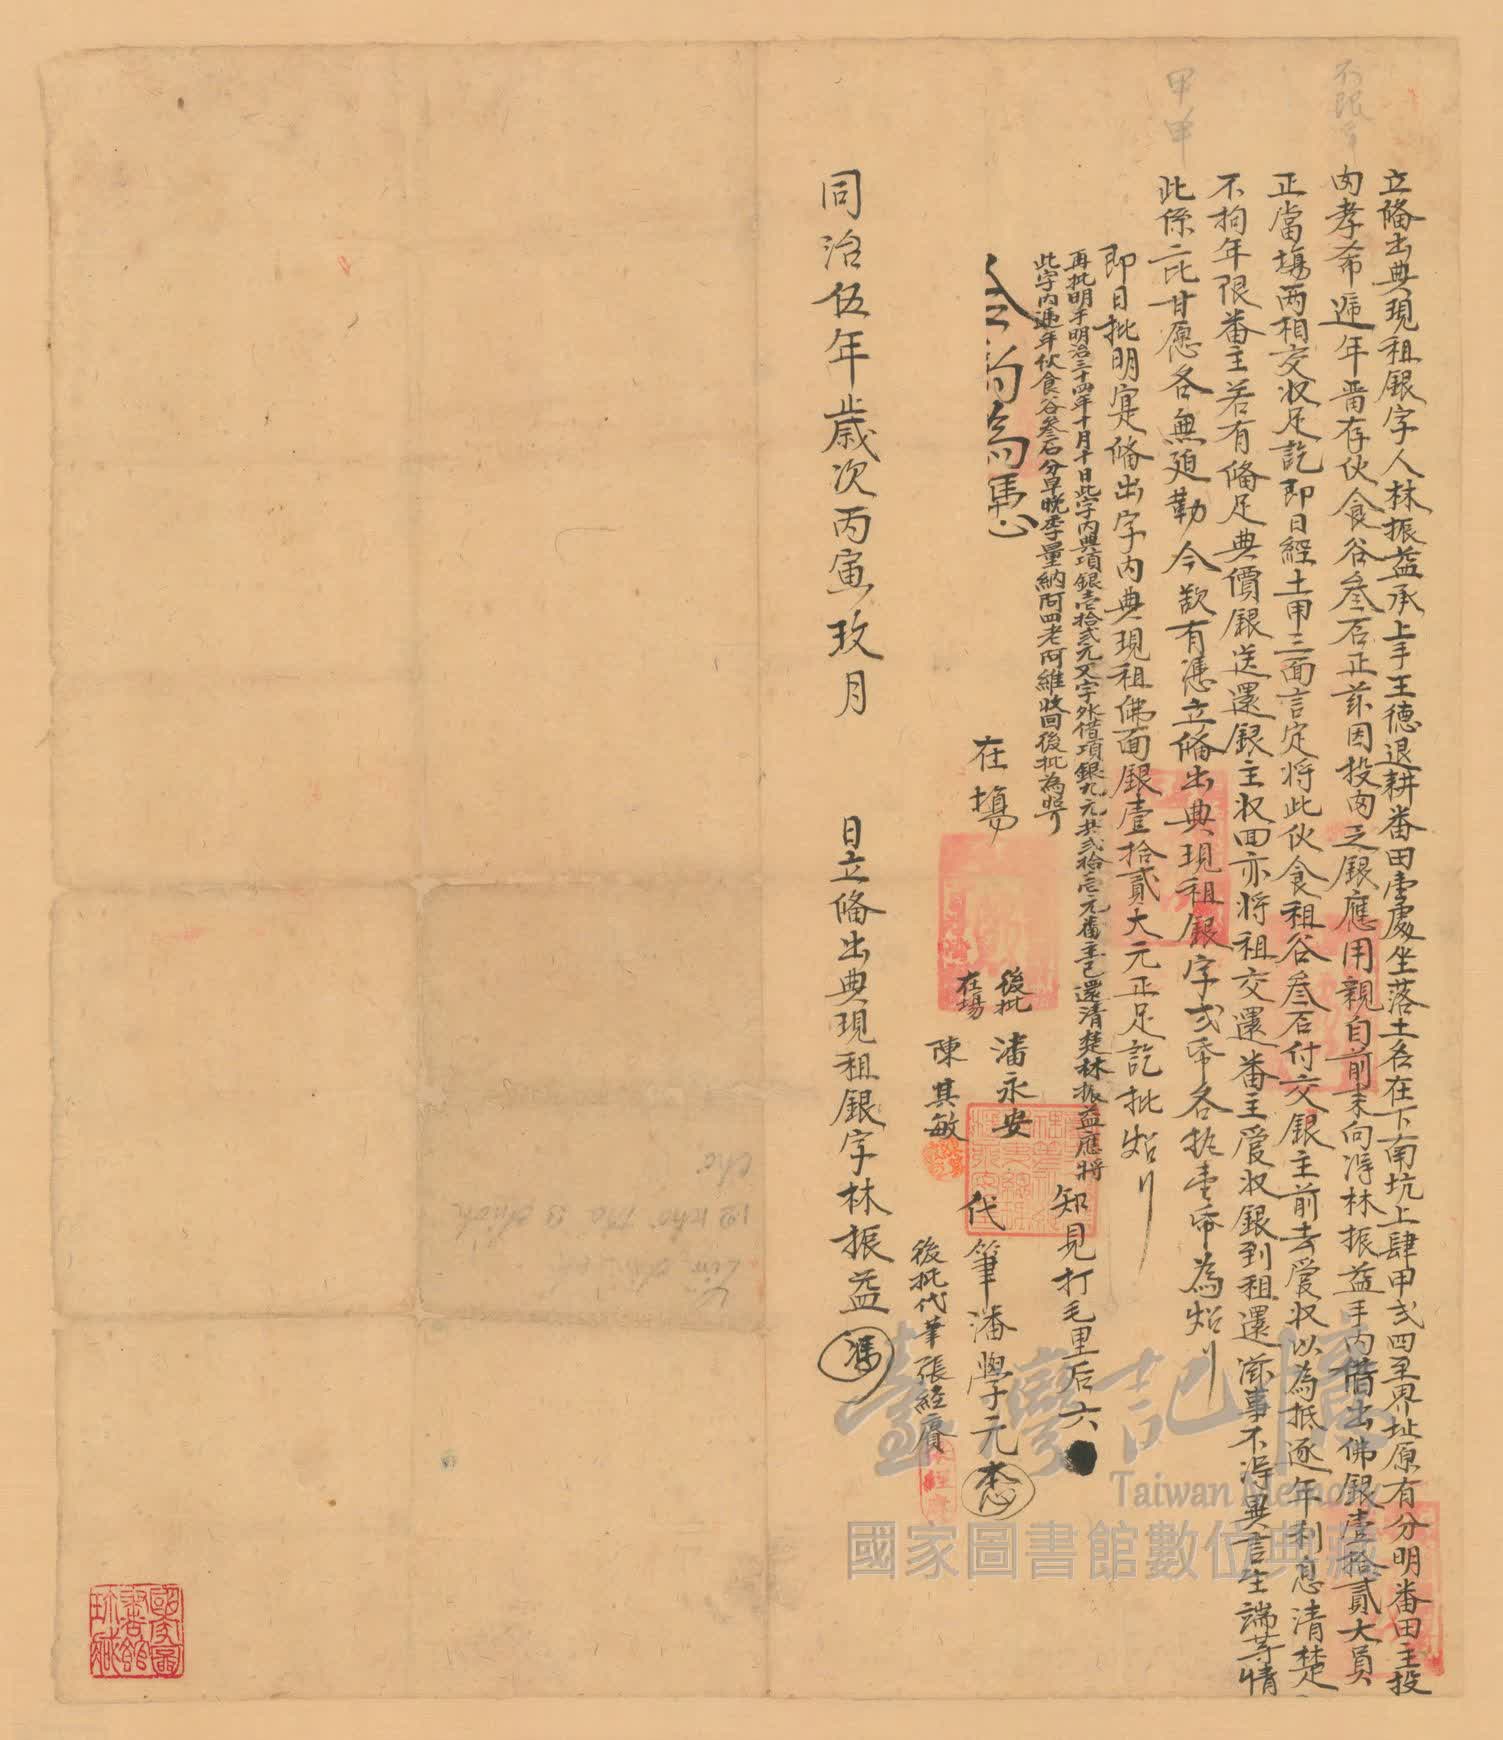 立俻出典現租銀字人林振益承上手王德退耕番田壹處坐落土名在下南坑上肆甲弍四至界址原有分明番田主投
肉孝希遞年晋存伙食谷叁石正茲因投肉乏銀應用親自前来向淂林振益手内借出佛銀壹拾貳大員
正當塲两相交收足訖即日經土甲三面言定将此伙食租谷叁石付交銀主前去受收以為抵逐年利息清楚
不拘年限番主若有俻足典價銀送還銀主收回亦将租交還番主受收銀到租還滋事不淂異言生端等情
此係二比甘愿各無廹勒今欲有憑立俻出典現租銀字弍帋各执壹帋為炤
即日批明寔俻出字内典現租佛面銀壹拾貳大元正足訖批炤
再批明于明治三十四年十月十日此字内典項銀壱拾弍元又字外借項銀九元共弍拾壱元番主已還清楚林振益應将
此字内逓年伙食谷叁石分早晚季量納阿四老阿維收回後批為照
合約為憑
知見打毛里后六
在塲
後批
在場
潘永安
陳其敏
代筆潘學元
後批代筆張経賡
同治伍年歳次丙寅玖月 日立俻出典現租銀字林振益
臺灣記憶
Taiwan Memory
國家圖書館數位典藏
國家圖書館珍藏